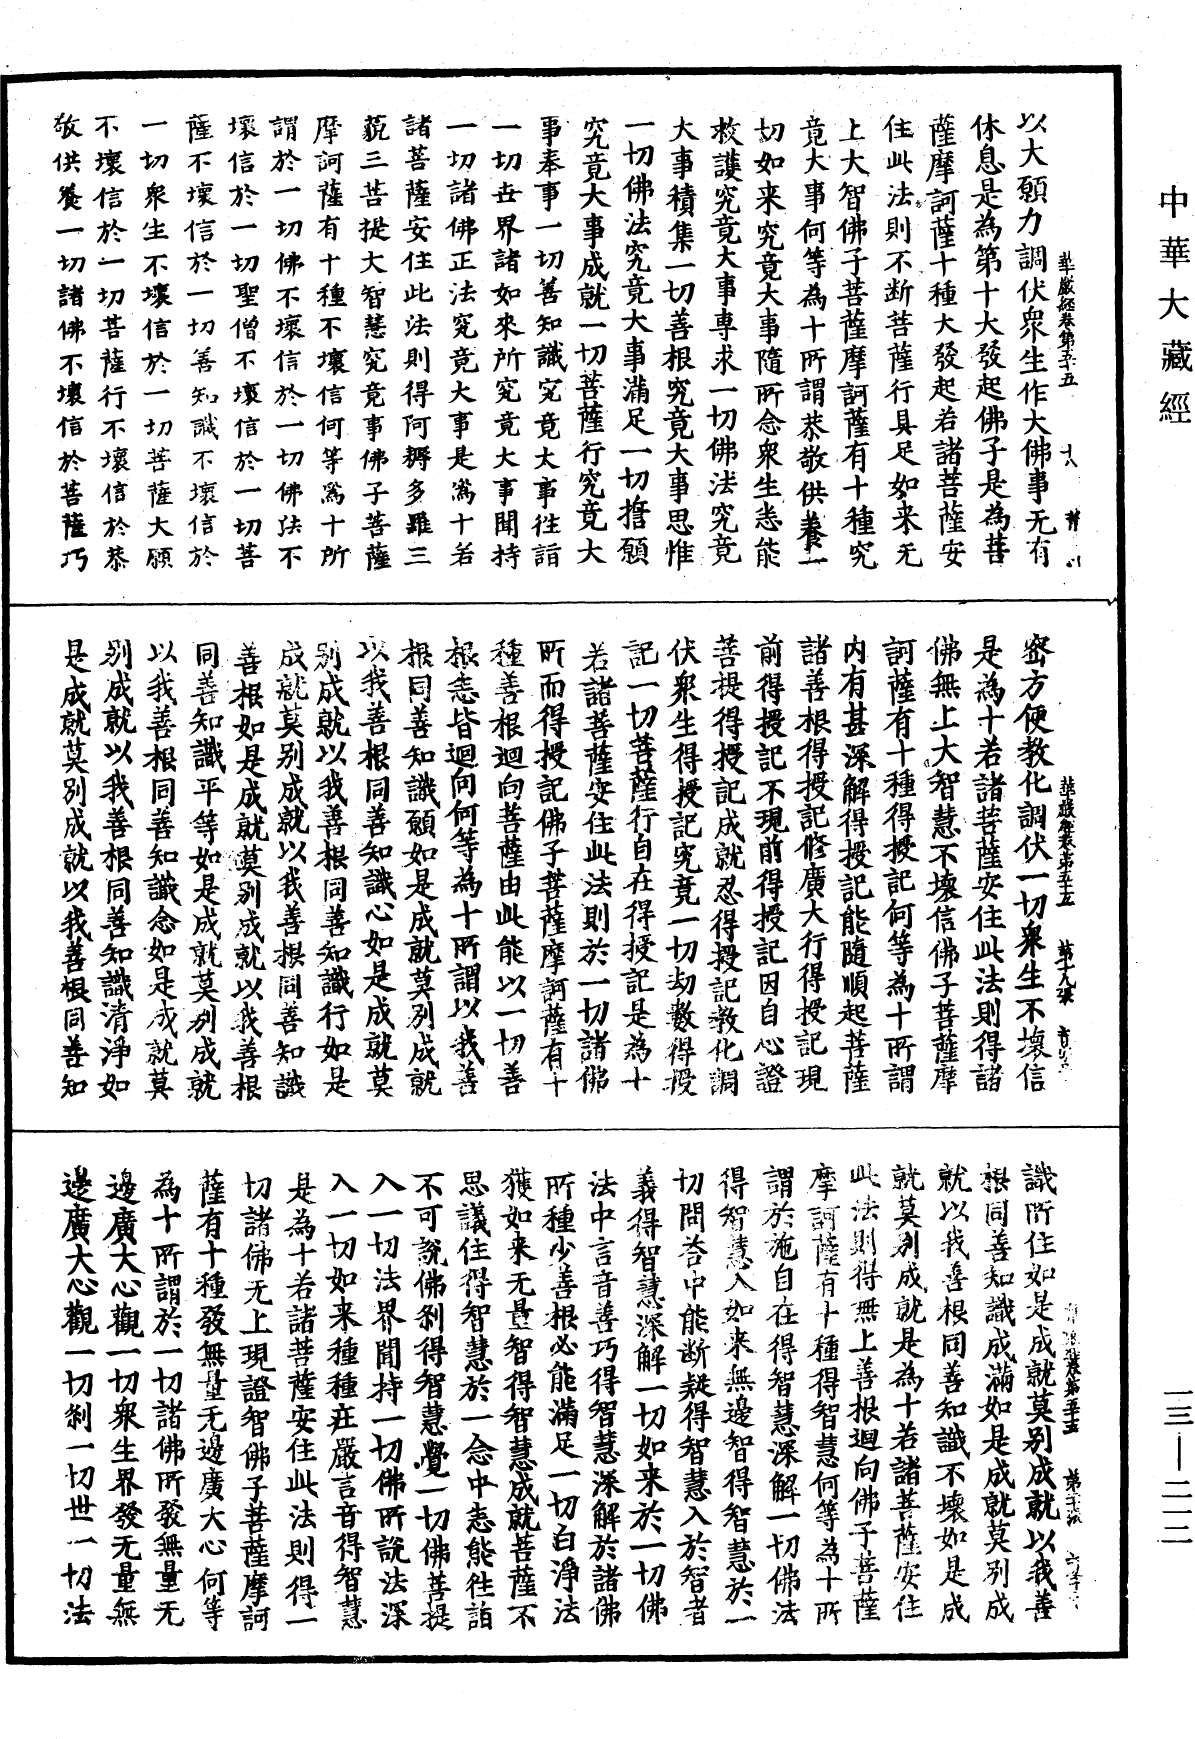 中華大藏經
華嚴經卷第五十五
以大願力調伏衆生作大佛事无有
休息是為第十大發起佛子是為菩
薩摩訶薩十種大發起若諸菩薩安
住此法則不断菩薩行具足如来无
上大智佛子菩薩摩訶薩有十種究
竟大事何等為十所謂恭敬供養一
切如来究竟大事隨所念衆生悉能
救護究竟大事專求一切佛法究竟
大事積集一切善根究竟大事思惟
一切佛法究竟大事滿足一切擔願
究竟大事成就一切菩薩行究竟大
事奉事一切善知識究竟大事往詣
一切世界諸如來所究竟大事聞持
一切諸佛正法究竟大事是為十若
諸菩薩安住此法則得阿耨多羅三
藐三菩提大智慧究竟事佛子菩薩
摩訶薩有十種不壞信何等為十所
謂於一切佛不壞信於一切佛法不
壞信於一切聖僧不壞信於一切菩
薩不壞信於一切善知識不壞信於
一切衆生不壞信於一切菩薩大願
不壞信於一切菩薩行不壞信於恭
敬供養一切諸佛不壞信於菩薩巧
華嚴經卷第五十五 第十九張
密方便教化調伏一切衆生不壞信
是為十若諸菩薩安住此法則得諸
佛無上大智慧不壞信佛子菩薩摩
訶薩有十種得授記何等為十所謂
内有甚深解得授記能隨順起菩薩
諸善根得授記修廣大行得授記現
前得授記不現前得授記因自心證
菩提得授記成就忍得授記教化調
伏衆生得授記究竟一切劫數得授
記一切菩薩行自在得授記是為十
若諸菩薩安住此法則於一切諸佛
所而得授記佛子菩薩摩訶薩有十
種善根迴向菩薩由此能以一切善
根悉皆迴向何等為十所謂以我善
根同善知識願如是成就莫別成就
以我善根同善知識心如是成就莫
別成就以我善根同善知識行如是
成就莫別成就以我善根同善知識
善根如是成就莫別成就以我善根
同善知識平等如是成就莫別成就
以我善根同善知識念如是成就莫
別成就以我善根同善知識清淨如
是成就莫別成就以我善根同善知
卷第五十五
識所住如是成就莫別成就以我善
根同善知識成滿如是成就莫別成
就以我善根同善知識不壞如是成
就莫別成就是為十若諸菩薩安住
此法則得無上善根迴向佛子菩薩
摩訶薩有十種得智慧何等為十所
謂於施自在得智慧深解一切佛法
得智慧入如来無邊智得智慧於一
切問荅中能断疑得智慧入於智者
義得智慧深解一切如来於一切佛
法中言音善巧得智慧深解於諸佛
所種少善根必能滿足一切白淨法
獲如来无量智得智慧成就菩薩不
思議住得智慧於一念中悉能往詣
不可說佛刹得智慧覺一切佛菩提
入一切法界聞持一切佛所說法深
入一切如来種種莊嚴言音得智慧
是為十若諸菩薩安住此法則得一
切諸佛无上現證智佛子菩薩摩訶
薩有十種發無量无邊廣大心何等
為十所謂於一切諸佛所發無量无
邊廣大心觀一切衆生界發无量無
邊廣大心觀一切刹一切世一切法
一三—二一二